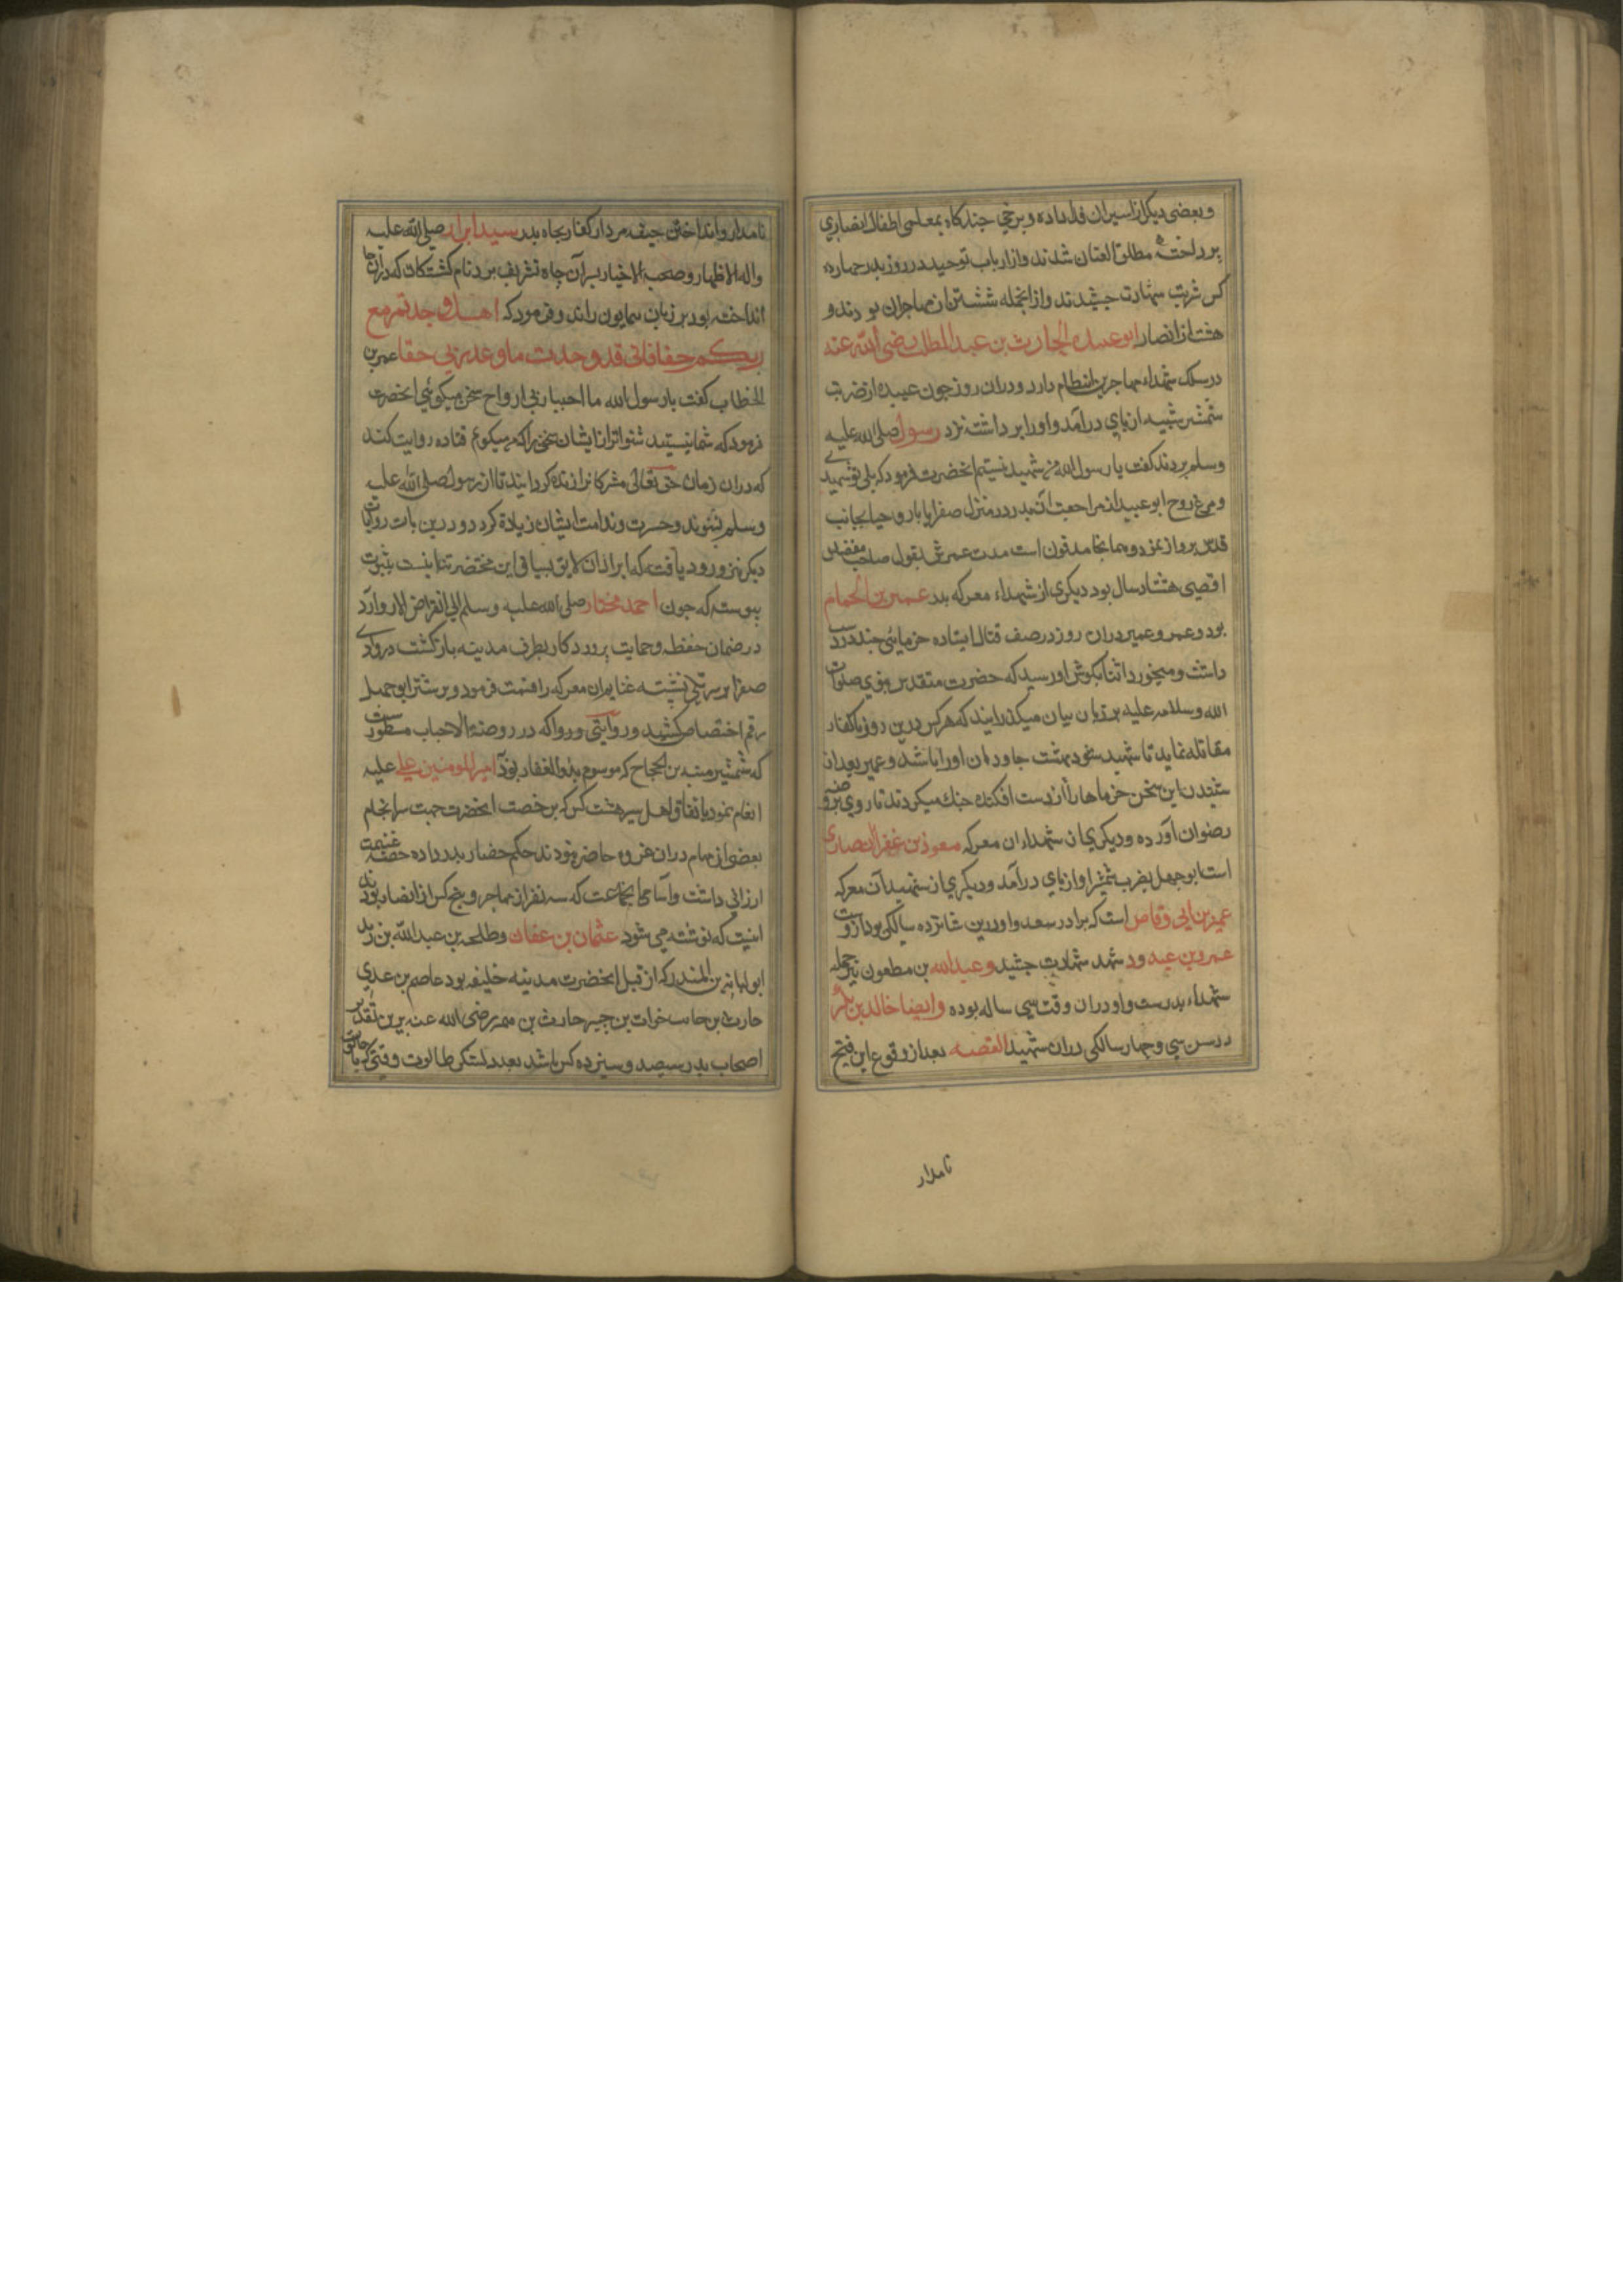 و بعضی دیگر از اسیران فدا داده و برخی چند کاه بمعلمی اطفال انصاری
پرداخته مطلق العنان شدند و از ارباب توحید در روز بدر چهارده
کس شربت شهادت چشیدند و از انجمله شش تن از مهاجران بودند و
هشت از انصار ابو عبیده الحارث بن عبد المطلب رضی الله عنه
در سلک شهداء مهاجرین انتظام دارد و دران روز چون عبیده از ضرب
شمشیر شیبه از پای در آمد و او را برداشته نزد رسول صلی الله علیه
وسلم بردند کفت یا رسول الله من شهید نیستم انحضرت فرمود که بلی تو شهیدی
و مرغ روح ابو عبیده از مراجعت از بدر در منزل صفرا با ریاحیا بجانب
قدس پرواز نمود و همانجا مدفون است مدت عمرش بقول صاحب مقصد
اقصی هشتاد سال بود دیکری از شهداء معرکه بدر عمیر بن الحمام
بود و عمیر دران روز در صف قتال ایستاده خرمایئ چند در دست
داشت و میخورد اثنا بکوش او رسید که حضرت مقدس نبوی صلوات
الله وسلامه علیه بر زبان بیان میکذرایند که هرکس درین روز با کفار
مقاتله نماید تا شهید شود بهشت جاودان او را باشد و عمیر بعد از
شنیدن این سخن خرماها را از دست افکنده جنك میکردند تا روی بروضه
رضوان آورده و دیکری از شهداء ان معرکه معوذ بن عفر الانصاری
است ابوجهل بضرب شمشیر او از پای در آمد و دیکری از شهیدان معرکه
عمیر بن ابی وقاص است که برادر سعد و او در سن شانزده سالکی بود از دست
عمرو بن عبد ود شهد شهادت چشید و عبدالله بن مطعون نیز جمله
شهداء بدرست و او دران وقت سی ساله بوده وایضا خالد بن بکر
در سن سی و چهار سالکی دران شهید القصه بعد از وقوع این فتح
نامدار
نامدار و انداختن جیفه مردار کفار بچاه بدر سید ابرار صلی الله علیه
واله الاظهار و صحبه الاخیار بسر آن چاه تشریف برد نام کشتکان که در آنجا
انداخته بود بر زبان همایون راند و فرمود که اهل وجدتم مع
ربکم حقا فانی قد وجدت ما وعد ربی حقا عمر بن
الخطاب کفت یا رسول الله ما احبا ربی ارواح سخن میکوئی انحضرت
فرمود که شما نیستید شنواتر از ایشان سخن را که میکویم قتاده روایت کند
که دران زمان حق تعالی مشرکان را زنده کردانید تا از رسول صلی الله علیه
وسلم بشنوند و حسرت و ندامت ایشان زیادة کردد و درین باب روایات
دیکر نیز ورود یافته که ایراد ان لایق بسیاق این مختصر نیست بثبوت
پیوسته که چون احمد مختار صلی الله علیه وسلم الی انقراض الادوار
در ضمان حفظ و حمایت پروردکار بطرف مدینه بازکشت در وادی
صفرا بر سر تلی نشسته غنایم ان معرکه را قسمت فرمود و بر شتر ابوجهل
رقم اختصاص کشید و روایتی ورواکه در روضة الاحباب مسطور است
که شمشیر منبه بن الحجاج که موسوم بذو الفقار بود امیر المومنین علی علیه
انعام نمود باتفاق اهل سیر هشت کس که برخصت انحضرت جهت سرانجام
بعضی از مهام دران غزوه حاضر نبودند حکم حضار بدر داده حصه غنیمت
ارزانی داشت و اسامی انجماعت که سه نفر از مهاجر و پنج کس از انصار بودند
اینست که نوشته می شود عثمان بن عفان و طلحه بن عبد الله بن زید
ابو لبابه بن المنذر که از قبل انحضرت مدینه خلیفه بود عاصم بن عدی
حارث بن حاسب خوات بن جبیر حارث بن صمه رضی الله عنه برین تقدیر
اصحاب بدر سیصد و سیزده کس باشد بعدد لشکر طالوت وقتی که با جالوت